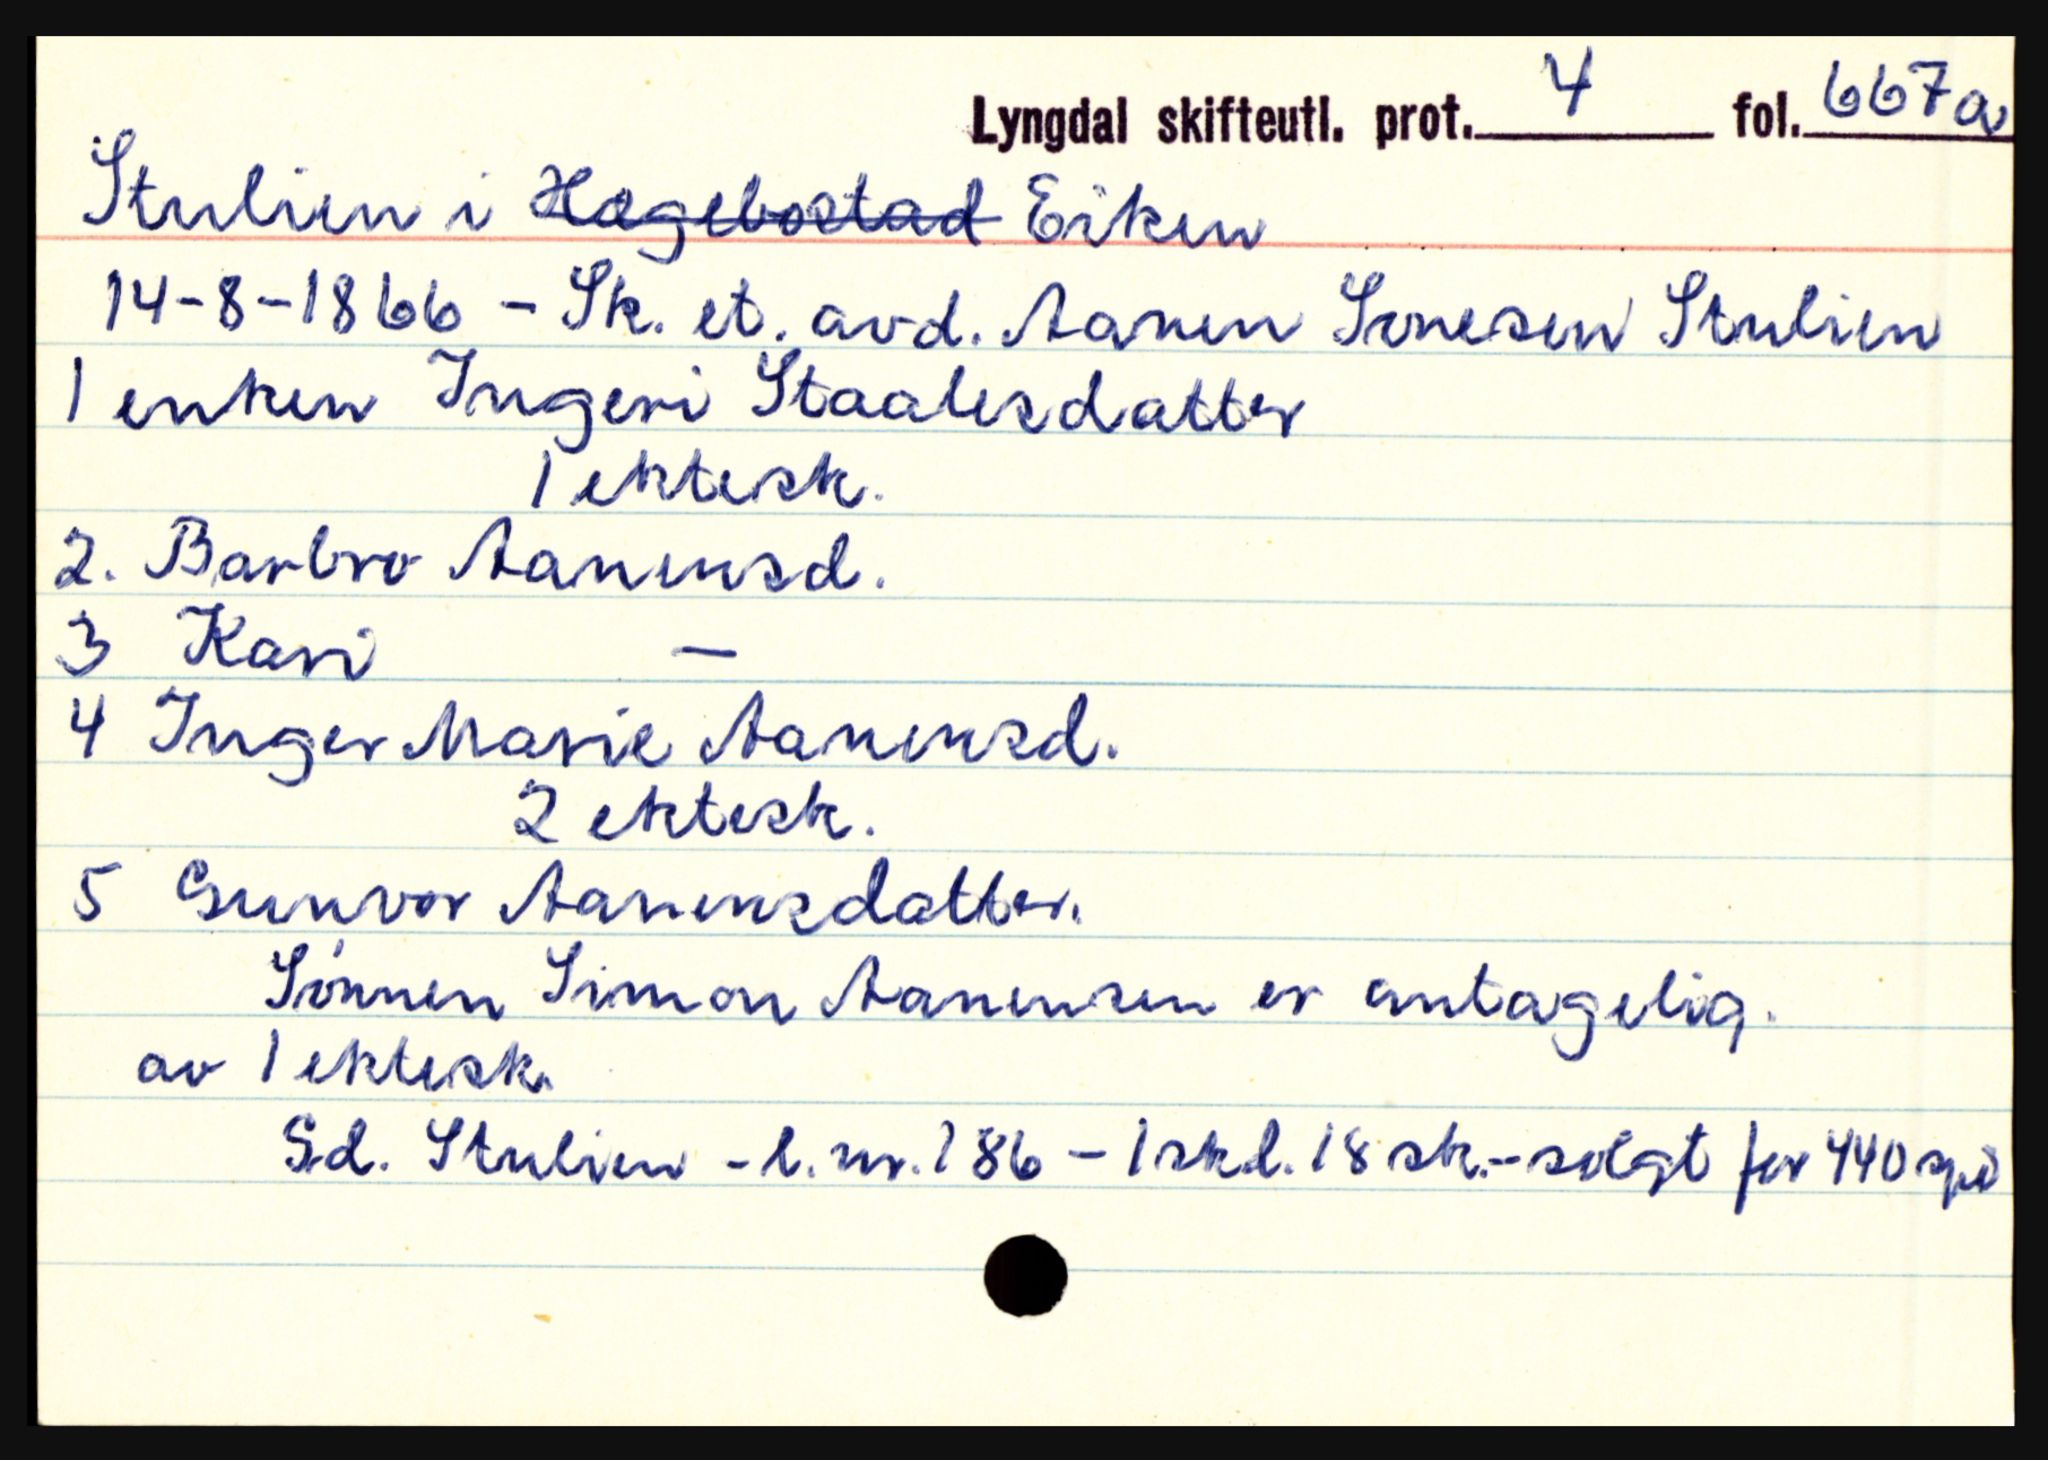 Lyngdal skifteutl. prot. 4 fol. 667a
Stulien i Hægebostad Eiken
14-8-1866 - Sk. et. avd. Aanen Sonesen Stulien
1 enken Ingeri Staalesdatter
1 ektesk.
2. Barbro Aanensd.
3 Kari —
4 Inger Marie Aanensd.
2 ektesk.
5 Gunvor Aanensdatter.
Sónnen Simon Aanensen er antagelig.
av 1 ektesk.
Gd. Stulien - l. nr. 186 - 1 skd. 18 sk. - solgt for 440 spd